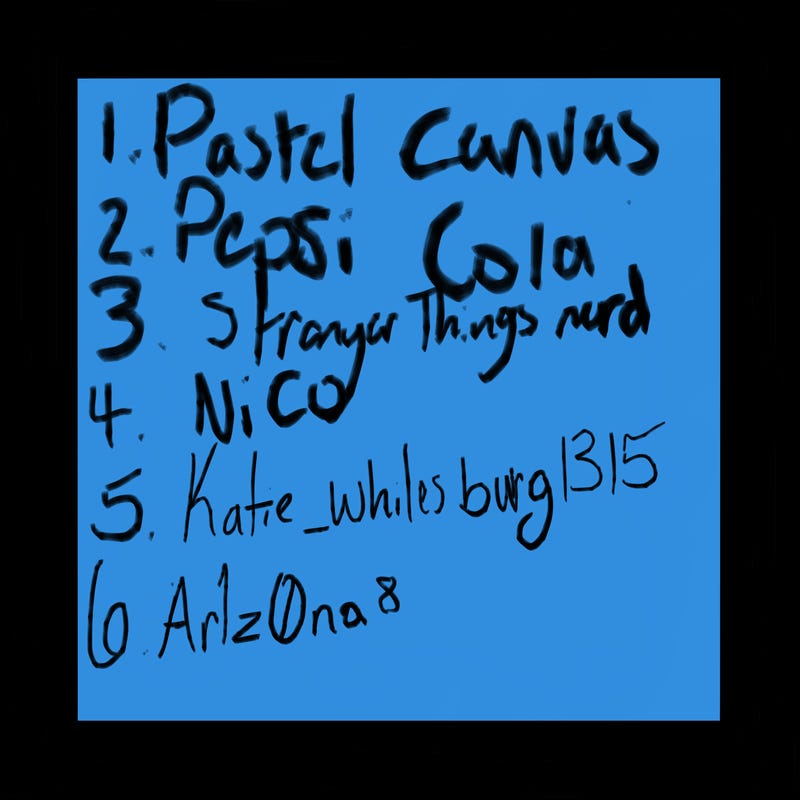 1. Pastel Canvas
2. Pepsi Cola
3. Stranger Things nerd
4. Nico
5. Katie_whilesburg1315
6. Ar1z0na8